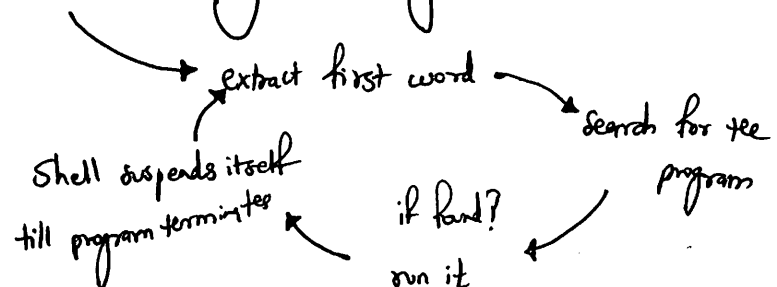 extract first word
search for the
program
if found?
run it
Shell suspends itself
till program terminates